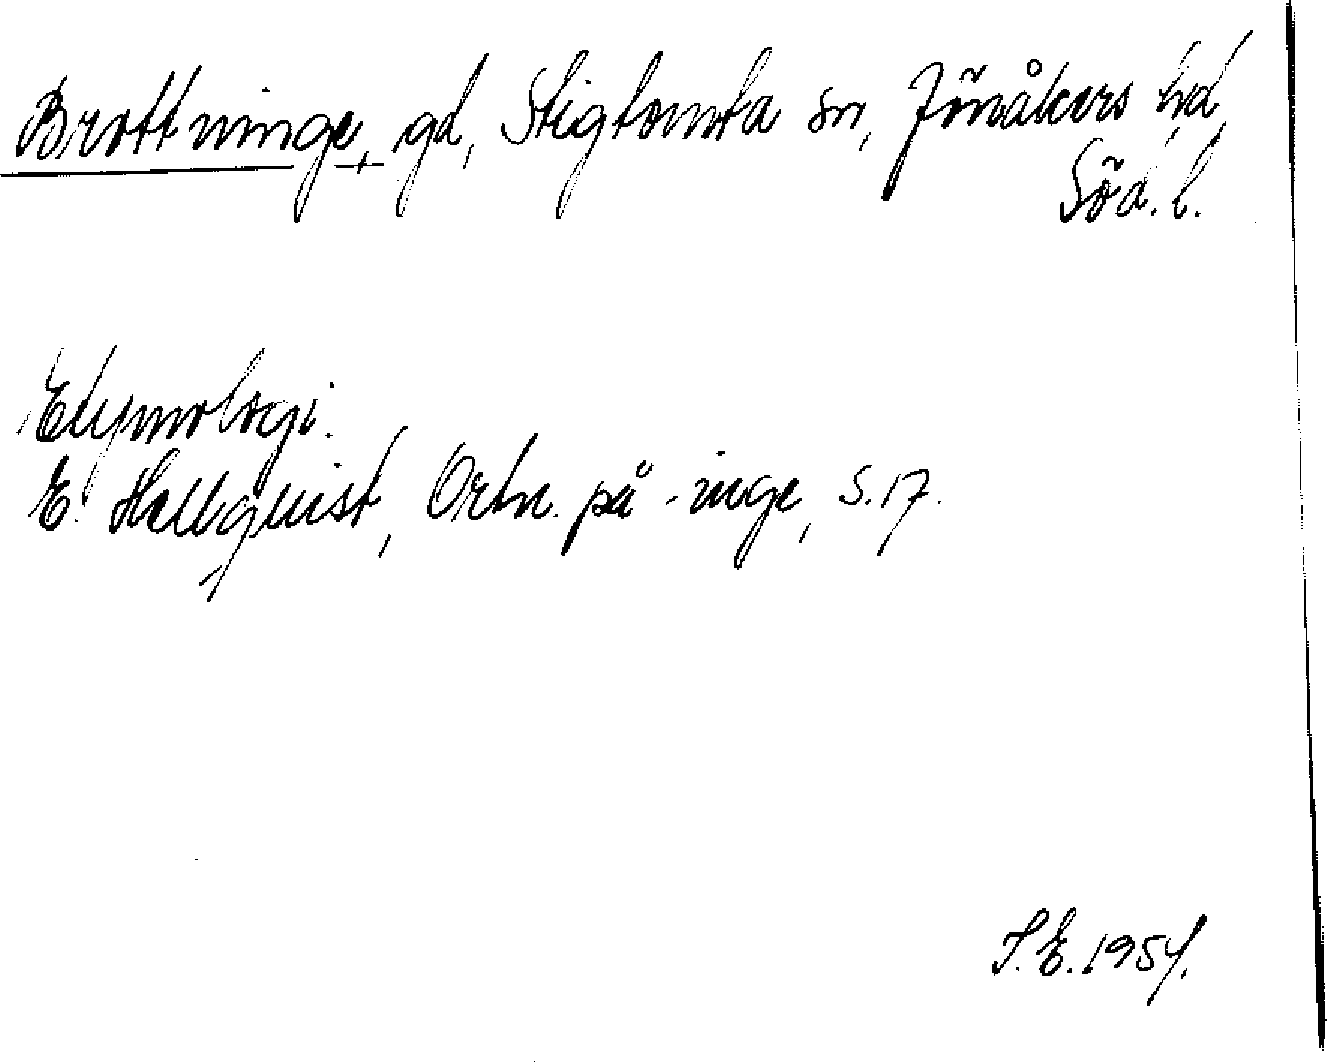 Brottninge, gd, Stigtomta sn, Jönåkers hd,
Söd. l.
Etymologi.
E. Hellquist, Ortn. på -inge, s. 17.
S. E. 1954.